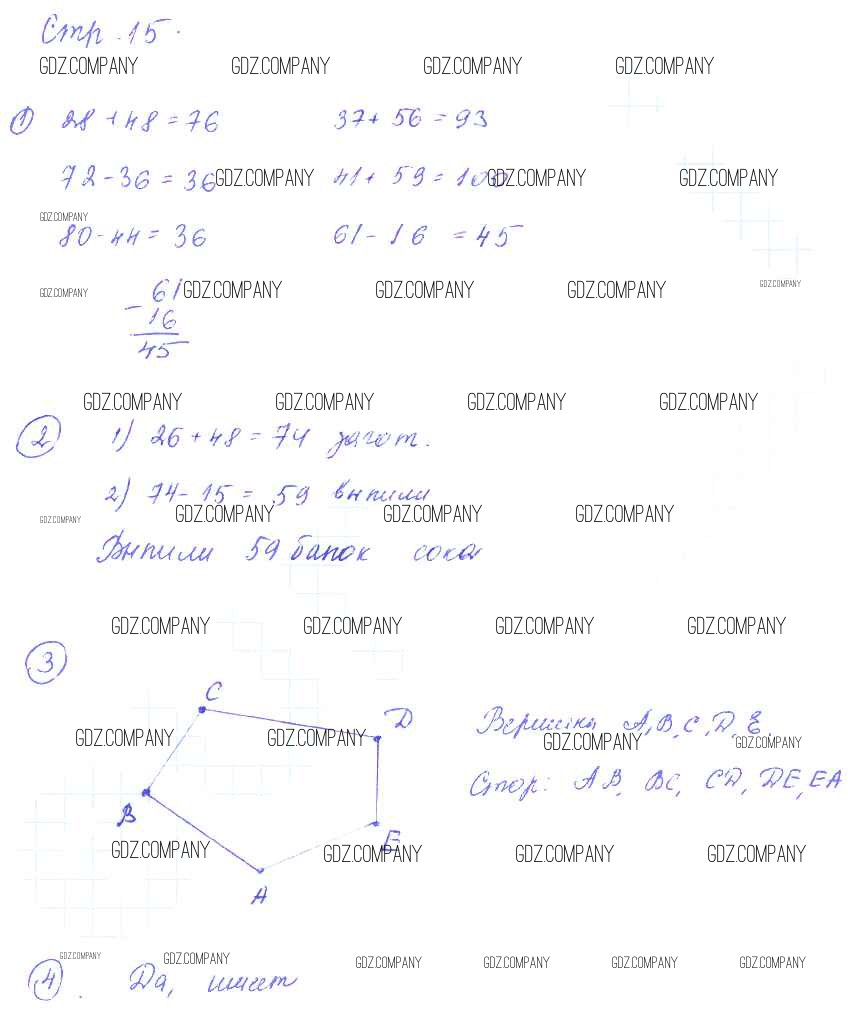 Стр. 15.
GDZ.COMPANY GDZ.COMPANY GDZ.COMPANY GDZ.COMPANY
1 28 + 48 = 76 37 + 56 = 93
72 - 36 = 36 GDZ.COMPANY 41 + 59 = 100 GDZ.COMPANY GDZ.COMPANY
GDZ.COMPANY
80 - 44 = 36 61 - 16 = 45
GDZ.COMPANY GDZ.COMPANY GDZ.COMPANY GDZ.COMPANY GDZ.COMPANY
61
- 16
45
GDZ.COMPANY GDZ.COMPANY GDZ.COMPANY GDZ.COMPANY
2 1) 26 + 48 = 74 загот.
2) 74 - 15 = 59 выпили
GDZ.COMPANY GDZ.COMPANY GDZ.COMPANY GDZ.COMPANY
Выпили 59 банок сока
GDZ.COMPANY GDZ.COMPANY GDZ.COMPANY GDZ.COMPANY
3
C
D Вершины A, B, C, D, E.
GDZ.COMPANY GDZ.COMPANY GDZ.COMPANY GDZ.COMPANY
Стор: AB, BC, CD, DE, EA
B
E
GDZ.COMPANY GDZ.COMPANY GDZ.COMPANY GDZ.COMPANY
A
GDZ.COMPANY GDZ.COMPANY GDZ.COMPANY GDZ.COMPANY GDZ.COMPANY GDZ.COMPANY
4. Да, имеет